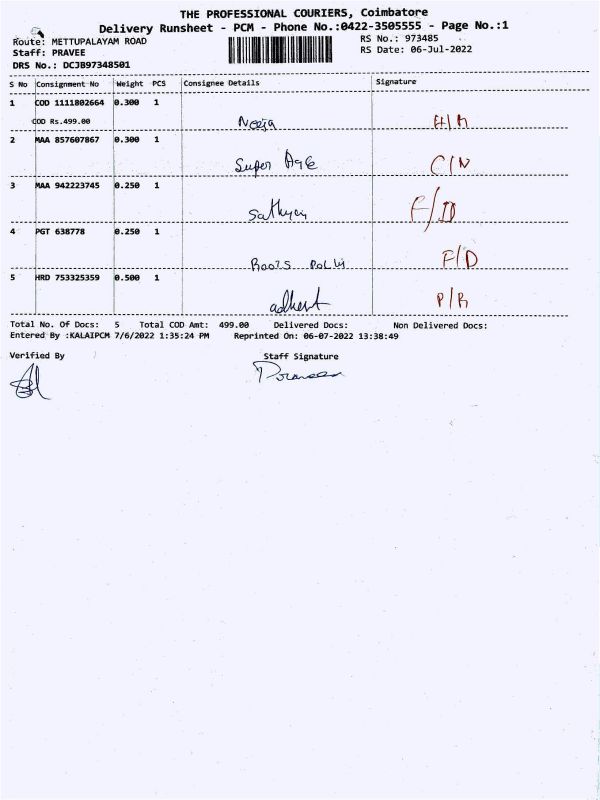 THE PROFESSIONAL COURIERS, Coimbatore
Delivery Runsheet - PCM - Phone No.:0422-3505555 - Page No.:1
Route: METTUPALAYAM ROAD
RS No.: 973485
Staff: PRAVEE
RS Date: 06-Jul-2022
DRS No.: DCJB97348501
S No Consignment No Weight PCS Consignee Details Signature
1 COD 1111802664 0.300 1
COD Rs.499.00
H/R
2 MAA 857607867 0.300 1
Super Age C/N
3 MAA 942223745 0.250 1
Sathya F/D
4 PGT 638778 0.250 1
Roots F/D
5 HRD 753325359 0.500 1
P/R
Total No. Of Docs: 5 Total COD Amt: 499.00 Delivered Docs: Non Delivered Docs:
Entered By :KALAIPCM 7/6/2022 1:35:24 PM Reprinted On: 06-07-2022 13:38:49
Verified By Staff Signature